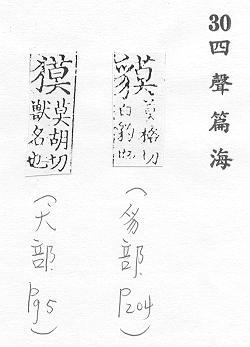 30四聲篇海
貘
莫格切
白豹
(豸部 P204)
獏
莫胡切
獸名也
(犬部 P95)